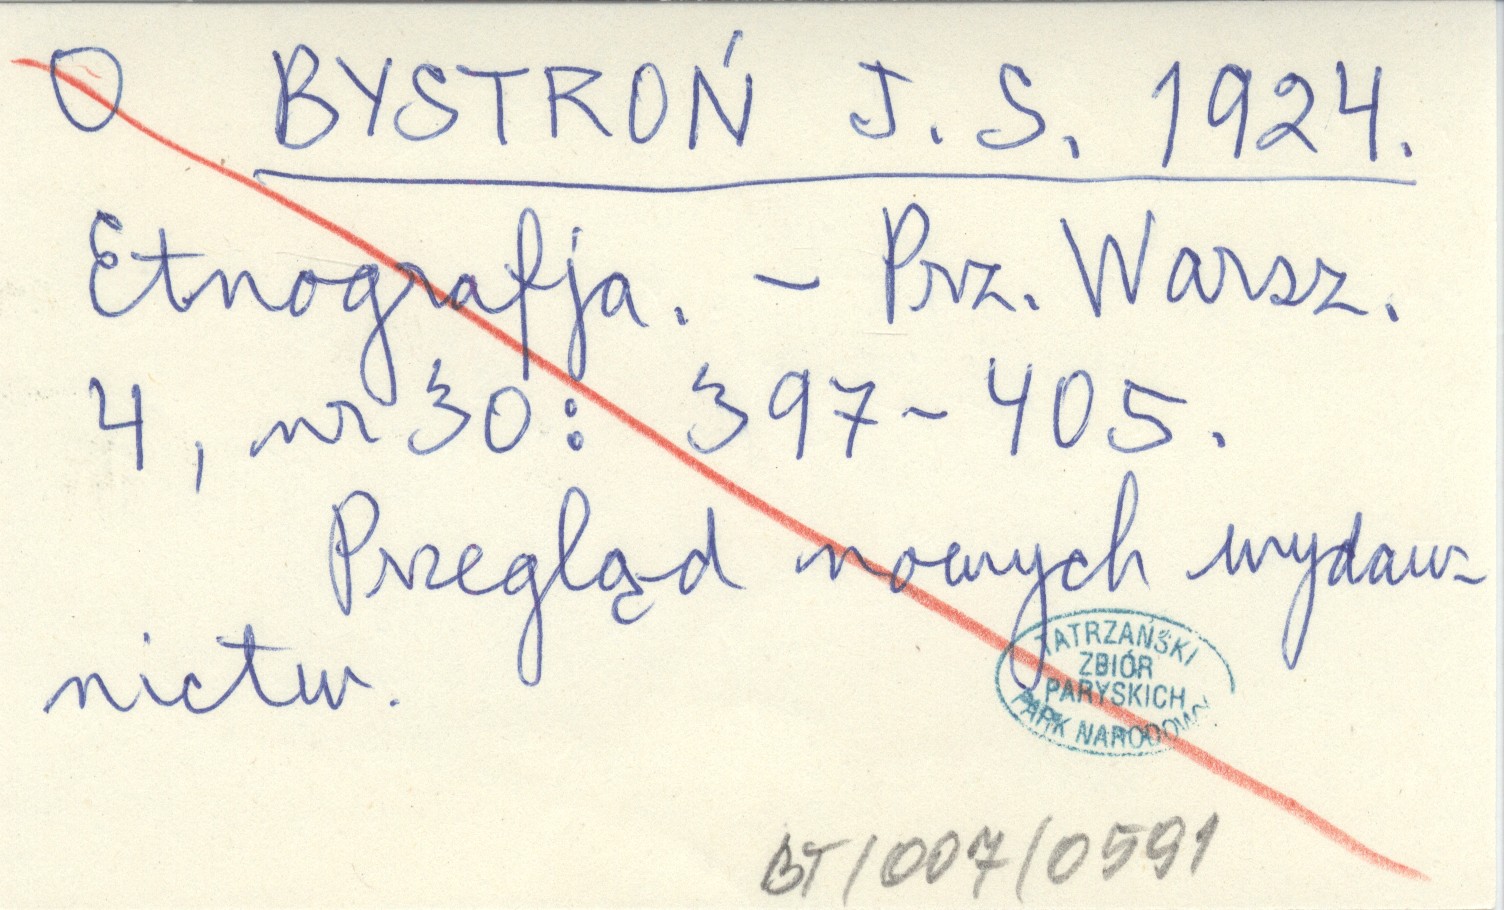 O BYSTROŃ J. S. 1924.
Etnografja. – Prz. Warsz.
4, nr 30: 397–405.
Przegląd nowych wydaw-
nictw.
TATRZAŃSKI
ZBIÓR
PARYSKICH
PARK NARODOWY
BT/007/0591